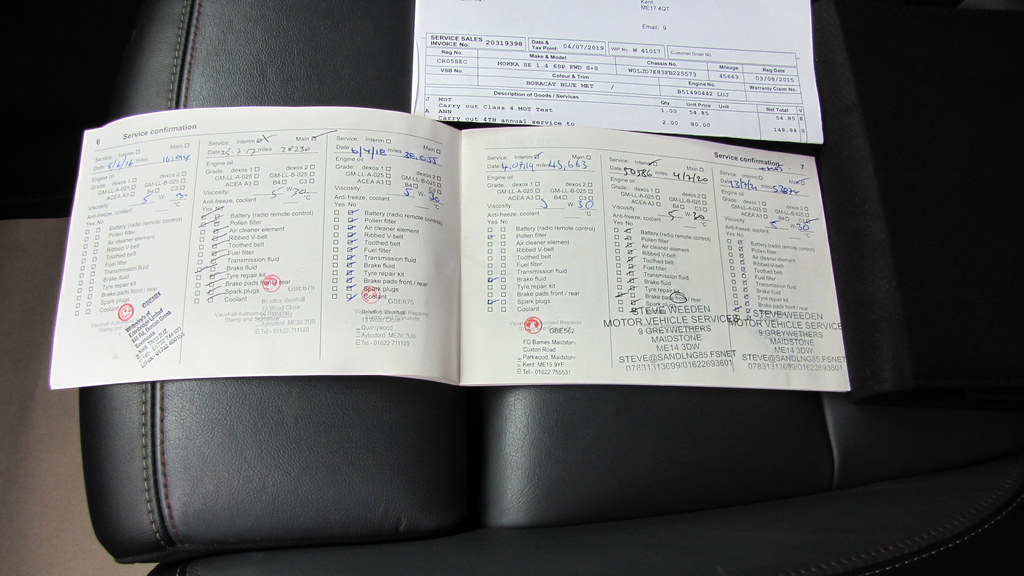 Kent
ME17 4QT
Email: 9
SERVICE SALES
INVOICE No: 20319398 Date & Tax Point: 04/07/2019 WIP No W 41017 Customer Order No.
Reg No. Make & Model Chassis No. Mileage Reg Date
MOKKA SE 1.4 6SP FWD S+S 45663 03/08/2015
VSB No. Colour & Trim Engine No. Warranty Claim No.
BORACAY BLUE MET /
Description of Goods / Services Qty. Unit Price Unit Net Total V
J MOT
Carry out Class 4 MOT Test 1.00 54.85 54.85
A ANN
Carry out 4TH annual service to 2.00 80.00 148.84
6 Service confirmation
Service: Interim Main
Date miles
Engine oil
Grade: dexos 1 dexos 2
GM-LL-A-025 GM-LL-B-025
ACEA A3 B4 C3
Viscosity W °C
Anti-freeze, coolant
Yes No
Battery (radio remote control)
Pollen filter
Air cleaner element
Ribbed V-belt
Toothed belt
Fuel filter
Transmission fluid
Brake fluid
Tyre repair kit
Brake pads front / rear
Spark plugs
Coolant
Service: Interim Main
Date miles 28230
Engine oil
Grade: dexos 1 dexos 2
GM-LL-A-025 GM-LL-B-025
ACEA A3 B4 C3
Viscosity 5 W- °C
Anti-freeze, coolant
Yes No
Battery (radio remote control)
Pollen filter
Air cleaner element
Ribbed V-belt
Toothed belt
Fuel filter
Transmission fluid
Brake fluid
Tyre repair kit
Brake pads front / rear
Spark plugs
Coolant
GBE675
Aylesford ME20 7UB
Tel - 01622 711120
Service: Interim Main
Date 6/4/18 miles 38,055
Engine oil
Grade: dexos 1 dexos 2
GM-LL-A-025 GM-LL-B-025
ACEA A3 B4 C3
Viscosity 5 W- 30 °C
Anti-freeze, coolant
Yes No
Battery (radio remote control)
Pollen filter
Air cleaner element
Ribbed V-belt
Toothed belt
Fuel filter
Transmission fluid
Brake fluid
Tyre repair kit
Brake pads front / rear
Spark plugs
Coolant
GBE675
Quarrywood
Aylesford ME20 7UB
Tel - 01622 711120
Service confirmation 7
Service: Interim Main
Date 4.07.19 miles 45,663
Engine oil
Grade: dexos 1 dexos 2
GM-LL-A-025 GM-LL-B-025
ACEA A3 B4 C3
Viscosity 5 W- 30
Anti-freeze, coolant °C
Yes No
Battery (radio remote control)
Pollen filter
Air cleaner element
Ribbed V-belt
Toothed belt
Fuel filter
Transmission fluid
Brake fluid
Tyre repair kit
Brake pads front / rear
Spark plugs
Coolant
GBE562
FG Barnes Maidstone
Cuxton Road
Parkwood, Maidstone
Kent. ME15 9YF
Tel - 01622 755531
Service: Interim Main
Date 50586 miles 4/7/20
Engine oil
Grade: dexos 1 dexos 2
GM-LL-A-025 GM-LL-B-025
ACEA A3 B4 C3
Viscosity 5 W- 30
Anti-freeze, coolant °C
Yes No
Battery (radio remote control)
Pollen filter
Air cleaner element
Ribbed V-belt
Toothed belt
Fuel filter
Transmission fluid
Brake fluid
Tyre repair kit
Brake pads front / rear
Spark plugs
STEVE WEEDEN
MOTOR VEHICLE SERVICES
9 GREYWETHERS
MAIDSTONE
ME14 3DW
STEVE@SANDLNG85.FSNET
07831313699/01622693601
Service: Interim Main
Date miles
Engine oil
Grade: dexos 1 dexos 2
GM-LL-A-025 GM-LL-B-025
ACEA A3 B4 C3
Viscosity 5 W- 30
Anti-freeze, coolant °C
Yes No
Battery (radio remote control)
Pollen filter
Air cleaner element
Ribbed V-belt
Toothed belt
Fuel filter
Transmission fluid
Brake fluid
Tyre repair kit
Brake pads front / rear
Spark plugs
STEVE WEEDEN
MOTOR VEHICLE SERVICE
9 GREYWETHERS
MAIDSTONE
ME14 3DW
STEVE@SANDLNG85.FSNET
07831313699/01622693601